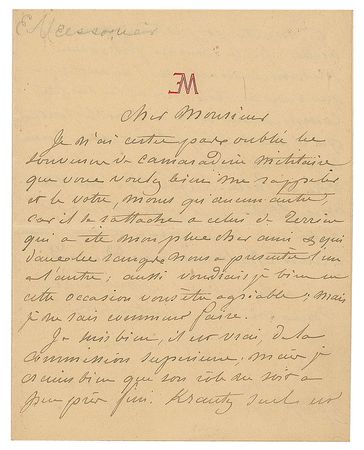 E Meissonier
EM
Cher Monsieur
Je n'ai certes pas oublié le
souvenir de camaraderie militaire
que vous voulez bien me rappeler
et le votre, moins qu'aucun autre,
car il se rattache à celui de
qui a été mon plus cher ami & qui
dans les rangs nous a présenté l'un
à l'autre; aussi voudrais je bien en
cette occasion vous être agréable; mais
je ne sais comment faire.
Je suis bien, il est vrai, de la
commission supérieure, mais je
crains bien que son rôle ne soit à
peu près fini. Krantz seul est